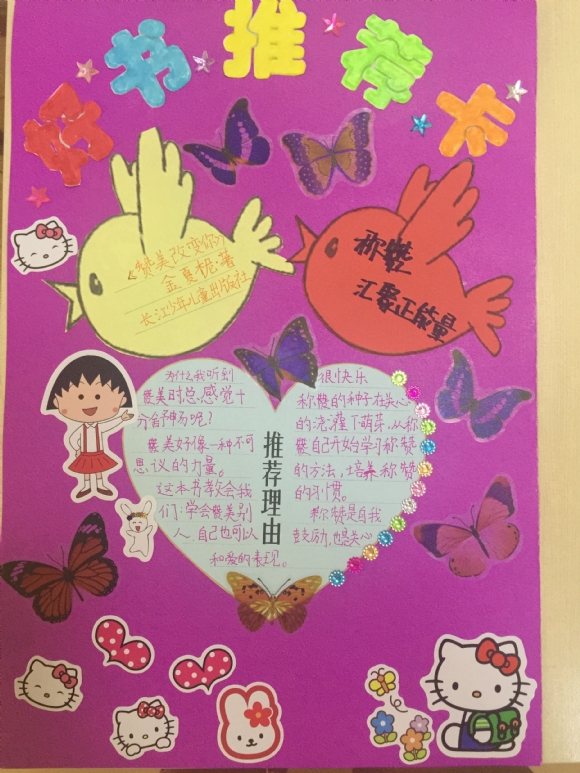 好书推荐卡
《赞美改变你》
金夏妮·著
长江少年儿童出版社
称赞
汇聚正能量
推荐理由
为什么我听到
赞美时总感觉十
分有神力呢？
赞美好像一种不可
思议的力量。
这本书教会我
们：学会赞美别
人，自己也可以
很快乐
称赞的种子在关心
的浇灌下萌芽，从称
赞自己开始学习称赞
的方法，培养称赞
的习惯。
称赞是自我
鼓励，也是关心
和爱的表现。